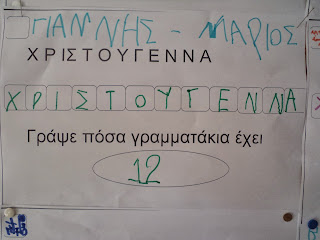 ΓΙΑΝΝΗΣ - ΜΑΡΙΟΣ
ΧΡΙΣΤΟΥΓΕΝΝΑ
ΧΡΙΣΤΟΥΓΕΝΝΑ
Γράψε πόσα γραμματάκια έχει
12